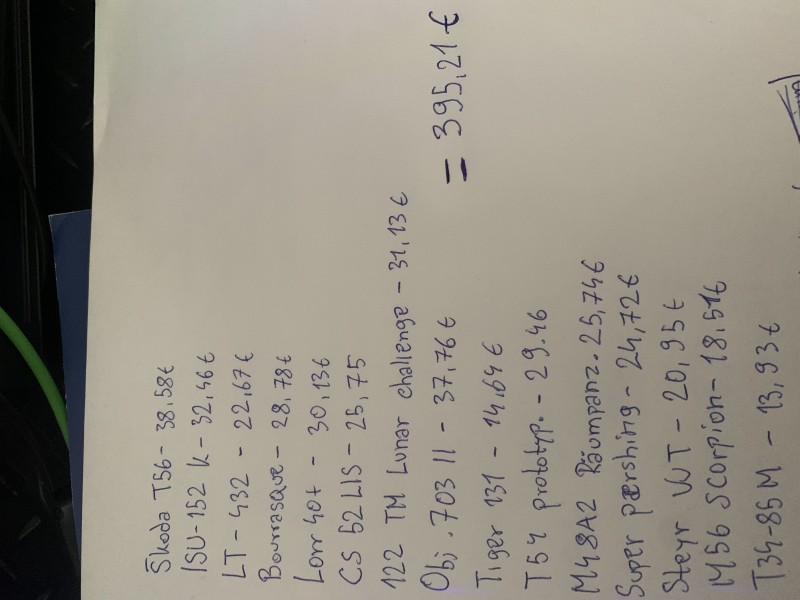 Škoda T56 - 38,58€
ISU-152 K - 32,46€
LT - 432 - 22,67€
Bourrasque - 28,78€
Lorr 40t - 30,13€
CS 52 LIS - 25,75
122 TM Lunar challenge - 31,13€
Obj. 703 II - 37,76€ = 395,21€
Tiger 131 - 14,64€
T54 prototyp. - 29.46
M48A2 Räumpanz. 25,74€
Super pershing - 24,72€
Steyr WT - 20,95€
M56 Scorpion - 18.51€
T34-85M - 13,93€